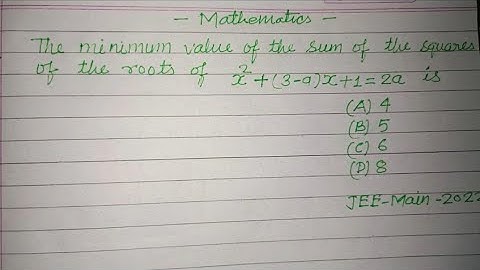 - Mathematics -
The minimum value of the sum of the squares
of the roots of x²+(3-a)x+1=2a is
(A) 4
(B) 5
(C) 6
(D) 8
JEE-Main-2022